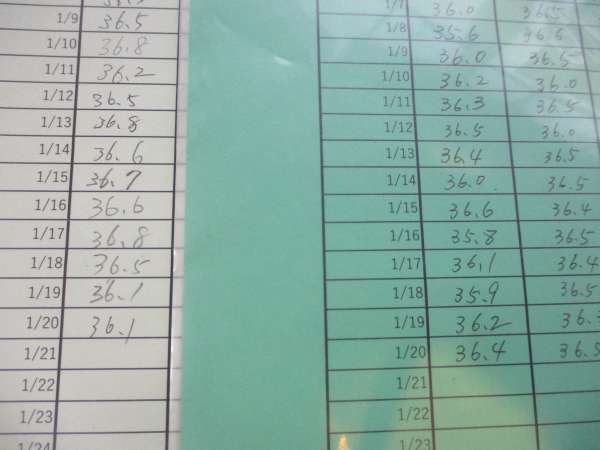 1/9 36.5
1/10 36.8
1/11 36.2
1/12 36.5
1/13 36.8
1/14 36.6
1/15 36.7
1/16 36.6
1/17 36.8
1/18 36.5
1/19 36.1
1/20 36.1
1/21
1/22
1/23
1/24
1/7 36.0 36.5
1/8 35.6 36.6
1/9 36.0 36.5
1/10 36.2 36.0
1/11 36.3 36.5
1/12 36.5 36.0
1/13 36.4 36.5
1/14 36.0 36.5
1/15 36.6 36.4
1/16 35.8 36.5
1/17 36.1 36.4
1/18 35.9 36.5
1/19 36.2
1/20 36.4 36.5
1/21
1/22
1/23